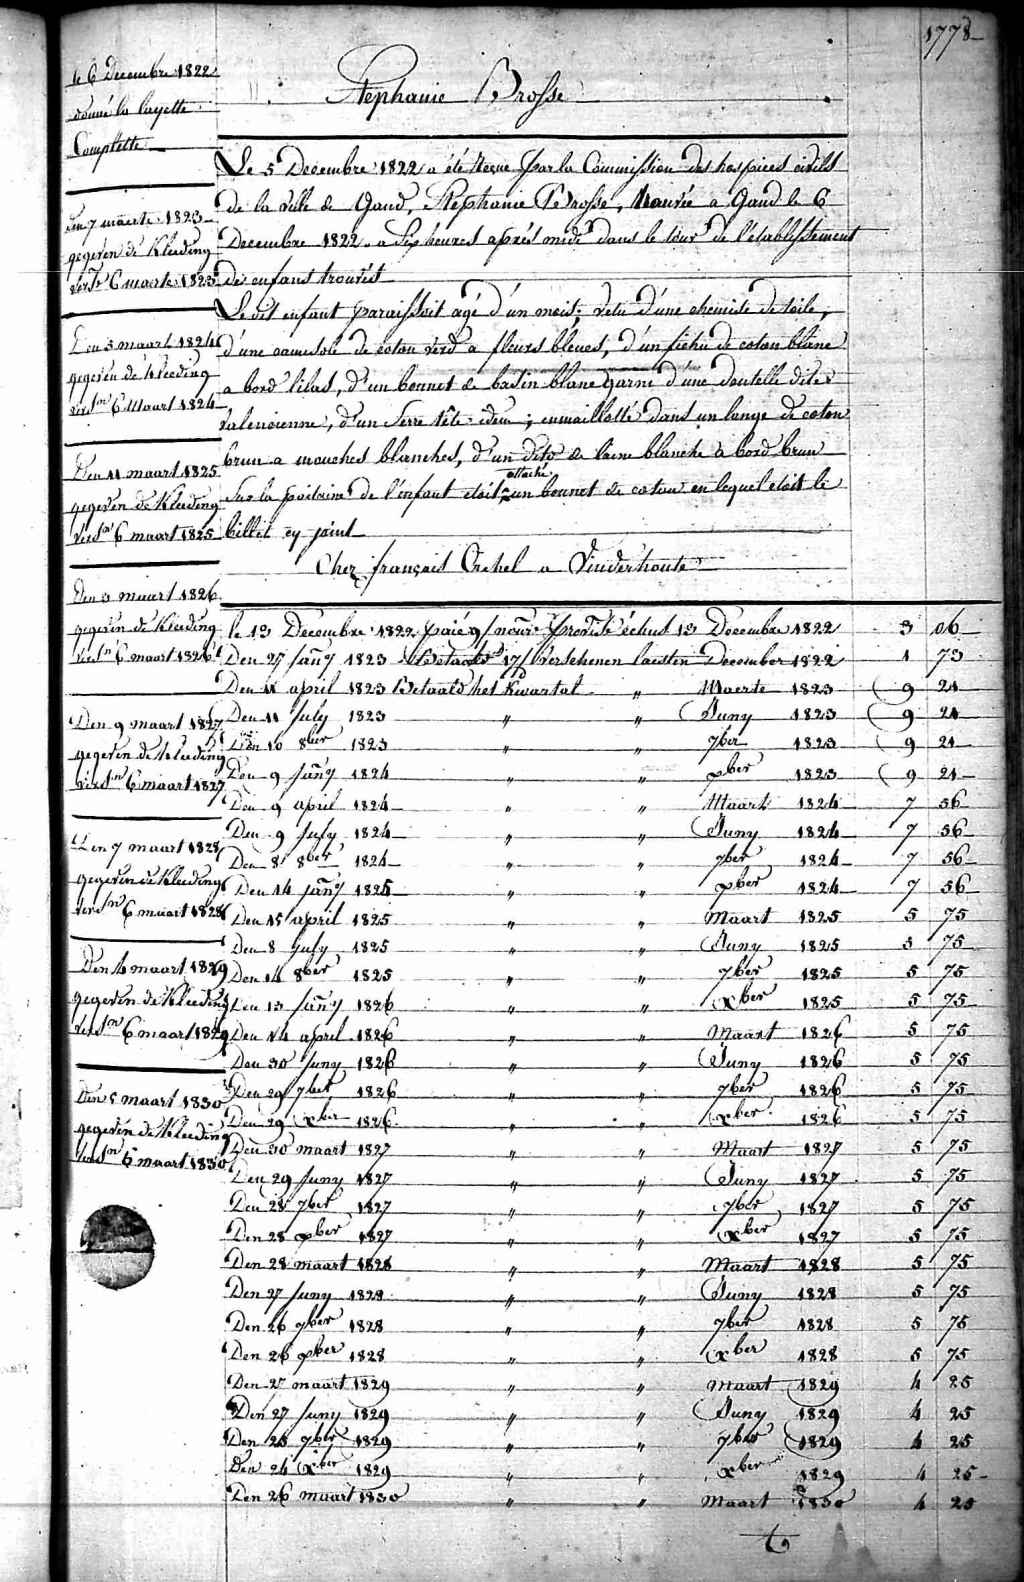 1778
Stephanie Brosse
le 6 Decembre 1822
donné la layette
Complette
Den 7 maerte 1823
gegeven de Kleeding
verst 6 maerte 1823
Den 5 maart 1824
gegeven de kleeding
versn 6 Maart 1824
Den 11 maart 1825
gegeven de Kleeding
versn 6 maart 1825
Den 3 maart 1826
gegeven de Kleeding
versn 6 maart 1826
Den 9 maart 1827
gegeven de Kleeding
versn 6 maart 1827
Den 7 maart 1828
gegeven de Kleeding
versn 6 maart 1828
Den 4 maart 1829
gegeven de Kleeding
versn 6 maart 1829
Den 5 maart 1830
gegeven de Kleeding
versn 6 maart 1830
Le 5 Decembre 1822 a été Reçue par la Commission des hospices civils
de la ville de Gand, Stephanie Brosse, trouvée a Gand le 6
Decembre 1822 a Sip heures aprés midi dans le tour de l'etablissement
de enfans trouvés
Le dit enfant paraissoit agé d'un mois, vetu d'une chemise de toile,
d'une camisole de coton verd a fleurs bleues, d'un fichu de coton blanc
a bord lilas, d'un bonnet de basin blanc garni d'une dentelle dites
Valencienne, d'un Serre tête idem; emmaillotté dans un lange de coton
brun a mouches blanches, d'un dito de laine blanche à bord brun
Sur la poitrine de l'enfant etoit attaché un bonnet de coton en lequel etoit le
billet cy joint
Chez françois Crehel a Vinderhoute
le 13 Decembre 1822 paié p/ nourr echus 13 Decembre 1822 3 06
Den 27 Janry 1823 Betaald 17/ Verschenen laesten December 1822 1 73
Den 11 april 1823 Betaald het Kwartal " Maerte 1823 9 21
Den 11 July 1823 " " Juny 1823 9 21
Den 10 8ber 1823 " " 7ber 1823 9 21
Den 9 Janry 1824 " " xber 1823 9 21
Den 9 april 1824 " " Maart 1824 7 56
Den 9 July 1824 " " Juny 1824 7 56
Den 8 8ber 1824 " " 7ber 1824 7 56
Den 14 Janry 1825 " " xber 1824 7 56
Den 15 april 1825 " " Maart 1825 5 75
Den 8 July 1825 " " Juny 1825 5 75
Den 14 8ber 1825 " " 7ber 1825 5 75
Den 13 Janry 1826 " " xber 1825 5 75
Den 14 april 1826 " " Maart 1826 5 75
Den 30 Juny 1826 " " Juny 1826 5 75
Den 29 7ber 1826 " " 7ber 1826 5 75
Den 29 xber 1826 " " xber 1826 5 75
Den 30 maart 1827 " " Maart 1827 5 75
Den 29 Juny 1827 " " Juny 1827 5 75
Den 28 7ber 1827 " " 7ber 1827 5 75
Den 28 xber 1827 " " xber 1827 5 75
Den 28 maart 1828 " " Maart 1828 5 75
Den 27 Juny 1828 " " Juny 1828 5 75
Den 26 7ber 1828 " " 7ber 1828 5 75
Den 26 xber 1828 " " xber 1828 5 75
Den 27 maart 1829 " " Maart 1829 4 25
Den 27 Juny 1829 " " Juny 1829 4 25
Den 25 7ber 1829 " " 7ber 1829 4 25
Den 24 xber 1829 " " xber 1829 4 25
Den 26 maart 1830 " " Maart 1830 4 25